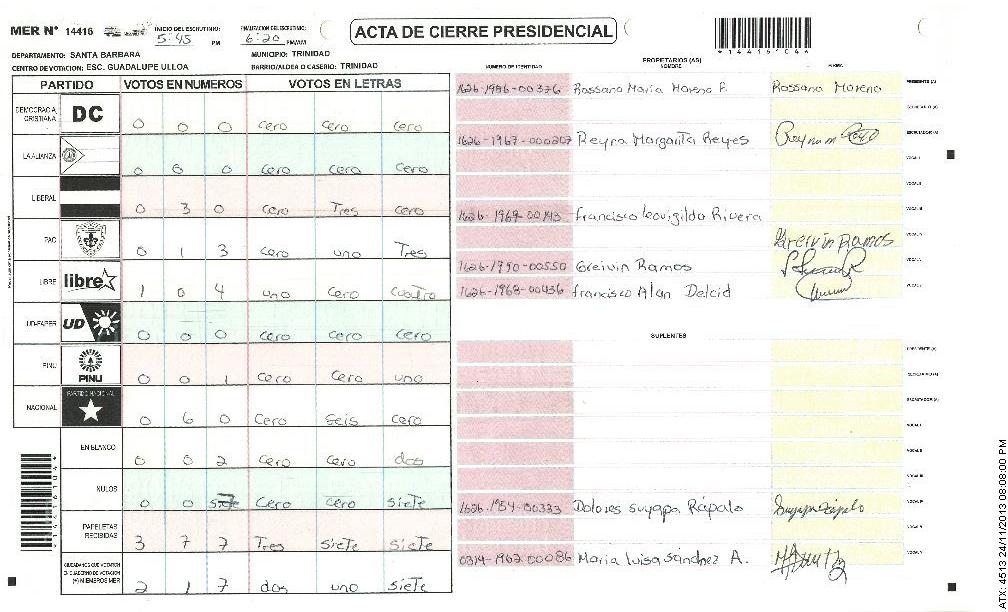 MER N° 14416
INICIO DEL ESCRUTINIO: 5:45 PM
FINALIZACION DEL ESCRUTINIO: 6:20 PM/AM
ACTA DE CIERRE PRESIDENCIAL
DEPARTAMENTO: SANTA BARBARA
MUNICIPIO: TRINIDAD
CENTRO DE VOTACION: ESC. GUADALUPE ULLOA
BARRIO/ALDEA O CASERIO: TRINIDAD
PARTIDO VOTOS EN NUMEROS VOTOS EN LETRAS
DEMOCRACIA CRISTIANA DC 0 0 0 Cero Cero Cero
LA ALIANZA 0 0 0 Cero Cero Cero
LIBERAL 0 3 0 Cero Tres Cero
PAC 0 1 3 Cero uno Tres
LIBRE libre 1 0 4 uno Cero Cuatro
UD-FAPER UD 0 0 0 Cero Cero Cero
PINU PINU 0 0 1 Cero Cero uno
NACIONAL PARTIDO NACIONAL 0 6 0 Cero Seis Cero
EN BLANCO 0 0 2 Cero Cero dos
NULOS 0 0 7 Cero Cero Siete
PAPELETAS RECIBIDAS 3 7 7 Tres Siete Siete
CIUDADANOS QUE VOTARON EN CUADERNO DE VOTACION (+) MIEMBROS MER 2 1 7 dos uno Siete
PROPIETARIOS (AS)
NUMERO DE IDENTIDAD NOMBRE FIRMA
1626-1986-00376 Rossana Maria Moreno P. Rossana Moreno PRESIDENTE (A)
SECRETARIO (A)
1626-1967-000207 Reyna Margarita Reyes ESCRUTADOR (A)
VOCAL I
VOCAL II
1626-1969-00193 Francisco Leovigildo Rivera VOCAL III
Greivin Ramos VOCAL IV
1626-1990-00550 Greivin Ramos VOCAL V
1626-1968-00436 Francisco Alan Delcid
SUPLENTES
PRESIDENTE (A)
SECRETARIO (A)
ESCRUTADOR (A)
VOCAL I
VOCAL II
VOCAL III
1626-1954-00333 Dolores Suyapa Rápalo Suyapa Rápalo VOCAL IV
VOCAL V
0314-1962-00086 Maria Luisa Sánchez A.
1441616044
ATX: 4513 24/11/2013 08:08:00 PM